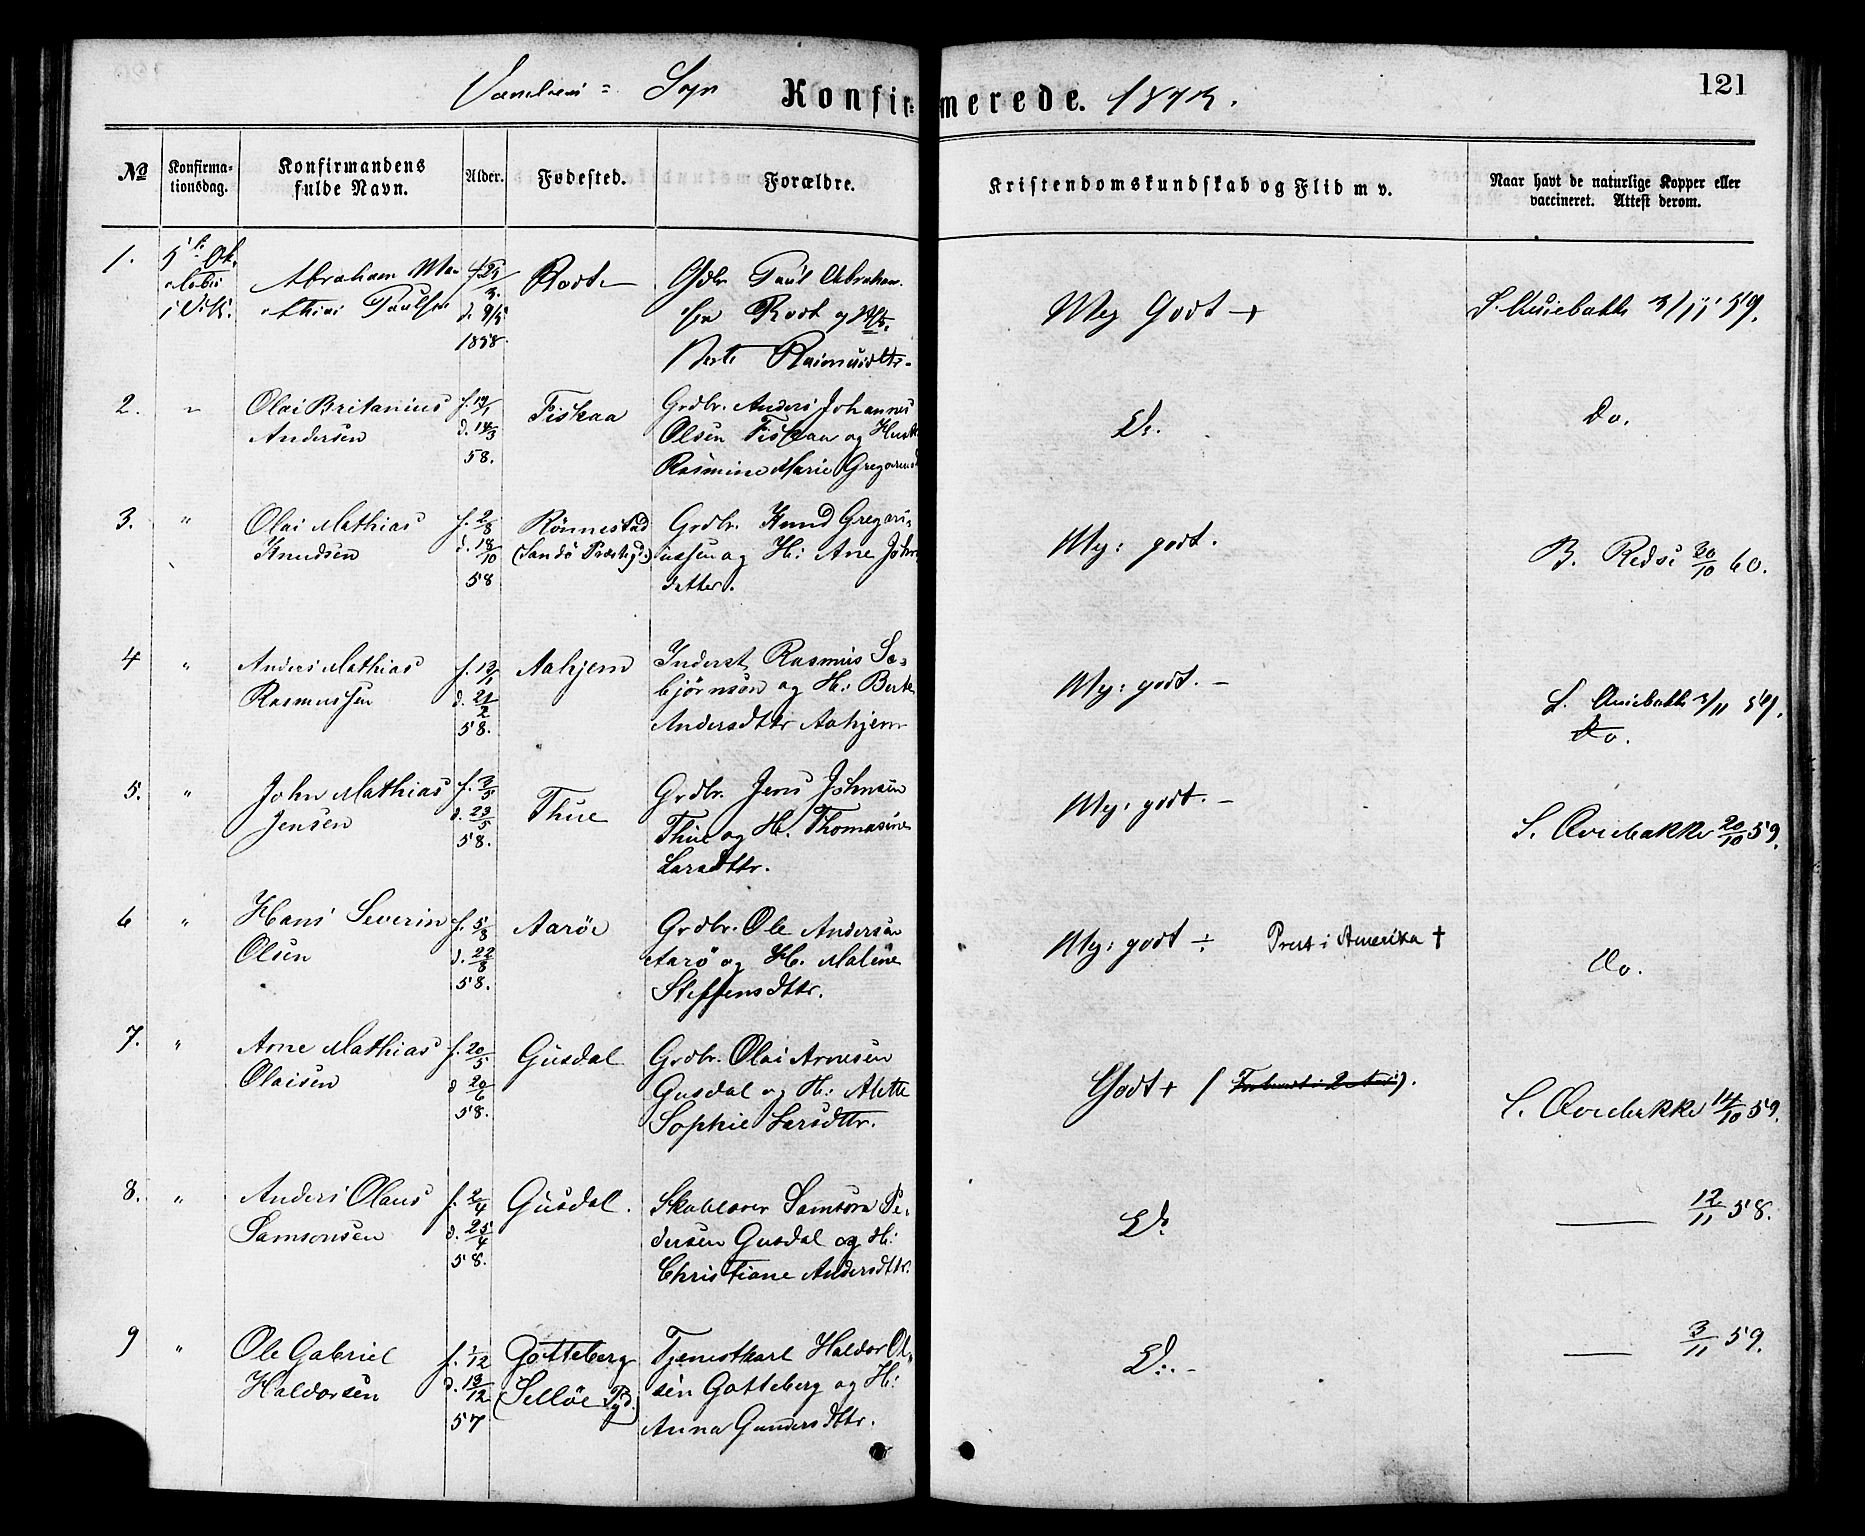 Sogn Konfirmerede. 1873. 121
№ Konfirma=
tionsdag. Konfirmandens
fulde Navn. Alder. Fødested. Forældre. Kristendomskundskab og Flid m v. Naar havt de naturlige Kopper eller
vaccineret. Attest derom.
1. 5te Ok=
tober
i Vik.
Abraham Ma=
thias Paulsen
f. 25/3.
d. 9/5
1858.
Rodt
Gdbr. Paul Abraham=
sen Rodt og H.
Berte Rasmusdtr.
Meg Godt +
3/11 59.
2. "
Olai Britanius
Andersen
f. 19/1
d. 14/3
58.
Fiskaa
Grdbr. Anders Johannes
Olsen Fiskaa og Hustr
Rasmine Marie Gregoriusd
Do.
Do.
3. "
Olai Mathias
Knudsen
f. 2/8
d. 18/10
58
Rönnestad
(Sandö Præstegj:)
Grdbr. Knud Gregori=
ussen og H: Ane John
datter.
Meg: godt.
B. Redse 30/10 60.
4 "
Anders Mathias
Rasmussen
f. 12/1
d. 21/2
58.
Aahjem
Inderst Rasmus Sæ=
bjørnsøn og H: Berte
Andersdttr Aahjem
Meg: godt. –
S. Qviebakke 3/11 59.
Do.
5. "
John Mathias
Jensen
f. 3/5
d. 23/5
58.
Thue
Grdbr. Jens Johnsen
Thue og H. Thomasine
Larsdttr.
Meg: godt. –
S. Qviebakke 20/10 59.
6 "
Hans Severin
Olsen
f. 5/8
d. 22/8
58.
Aaröe
Grdbr. Ole Andersen
Aarö og H. Maline
Steffensdttr.
Meg: godt ÷ Prest i Amerika †
Do.
7. "
Arne Mathias
Olaisen
f. 20/5
d 20/6
58.
Gusdal
Grdbr. Olai Arnesen
Gusdal og H: Alette
Sophie Larsdttr.
Godt +
S. Qviebakke 14/10 59.
8. "
Anders Olaus
Samsonsen
f. 2/4
d. 25/4
58.
Gusdal.
Skolelærer Samson Pe=
dersen Gusdal og H:
Christiane Andersdttr.
Do
— 12/11 58.
9 "
Ole Gabriel
Haldorsen
f. 1/12
d. 13/12
57
Gotteberg
(Selløe Pgd.)
Tjenestkarl Haldor Ol=
sen Gotteberg og H:
Anna Gundersdttr.
Do. –
— 3/11 59.